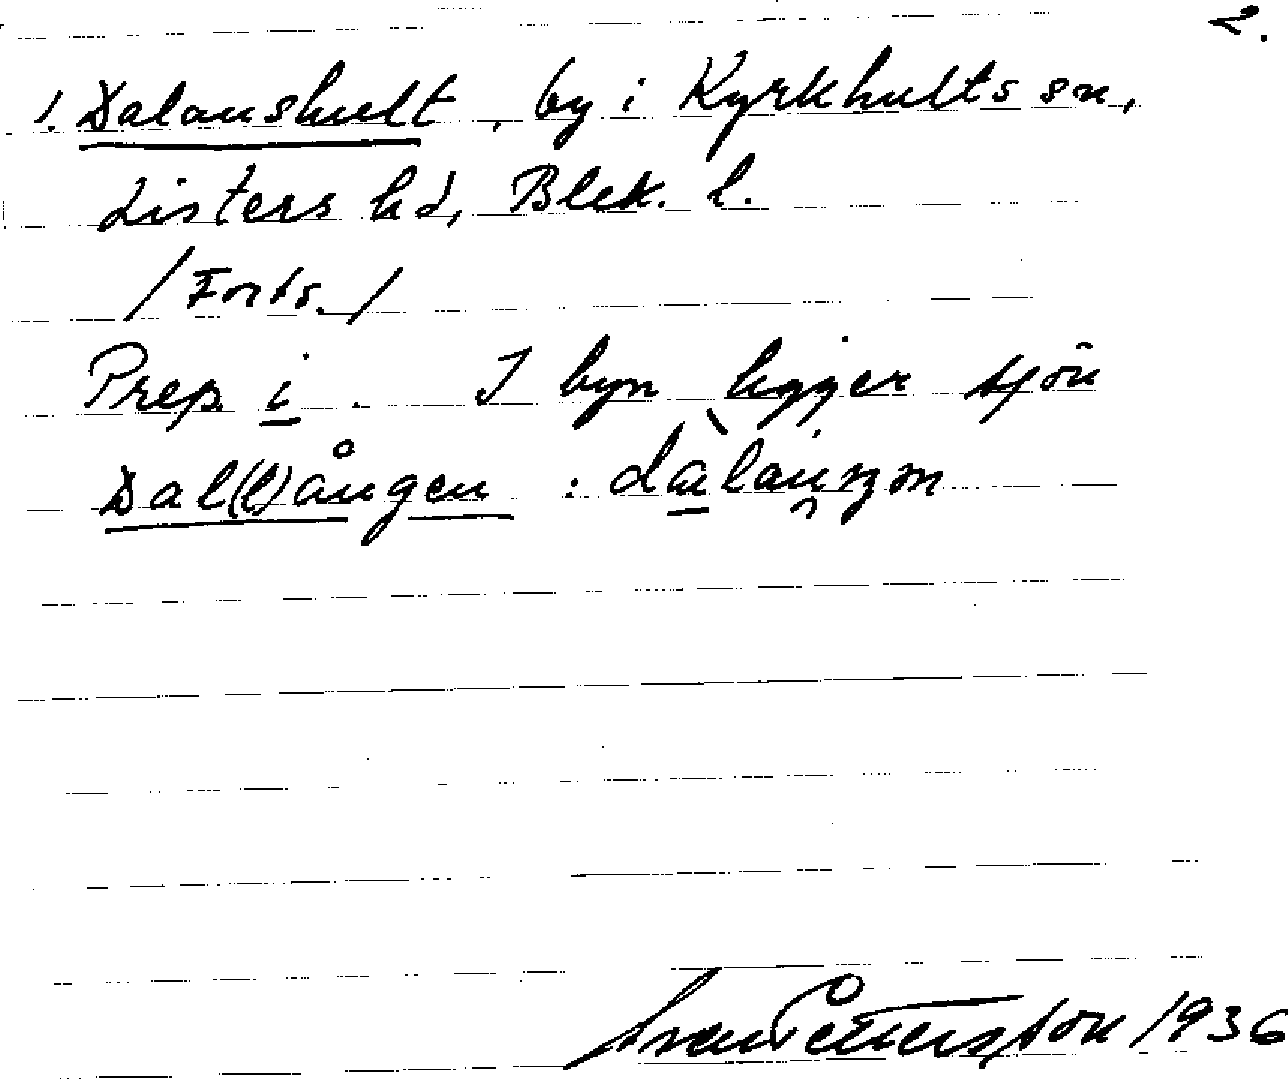 2.
1. Dalanshult, by i Kyrkhults sn,
Listers hd, Blek. l.
/Forts./
Prep. i. I byn ligger sjön
Dal(l)ången :
Sven Pettersson 1936